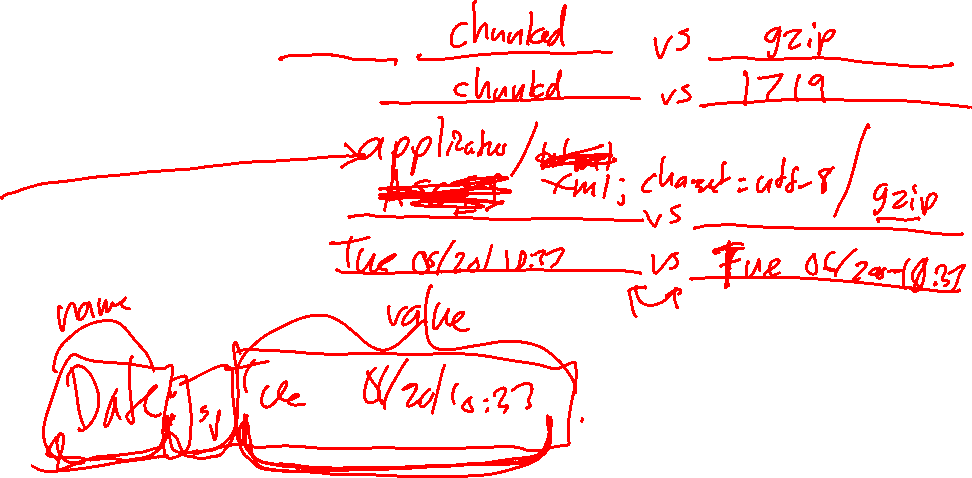 chunked vs gzip
chunkd vs 1719
application/xml; charset=utf-8/gzip
vs
Tue 08/20/10:37 vs Tue
name value
Date: Tue 08/20/10:33